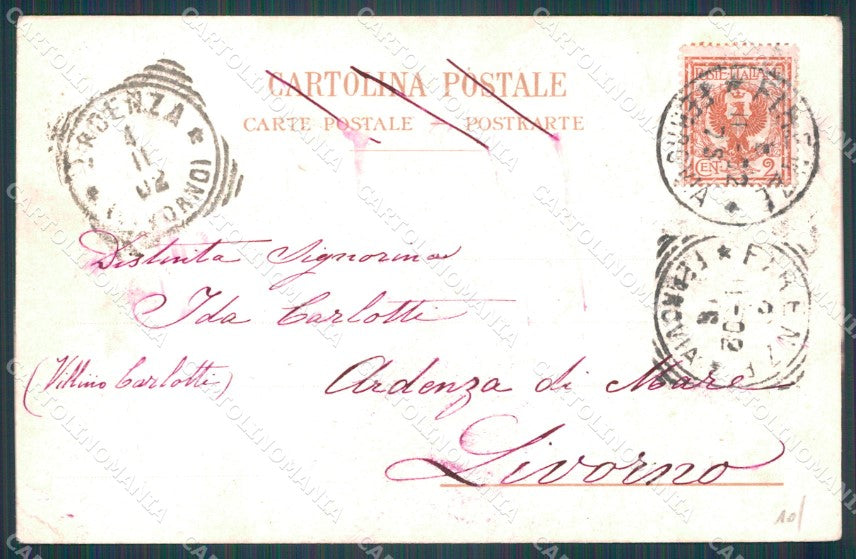 CARTOLINA POSTALE
CARTE POSTALE — POSTKARTE
POSTE ITALIANE
CENT. 2
FIRENZE
FERROVIA
ARDENZA
4
11
02
(LIVORNO)
FIRENZE
FERROVIA
Distinta Signorina
Ida Carlotti
(Villino Carlotti)
Ardenza di Mare
Livorno
10/
CARTOLINOMANIA